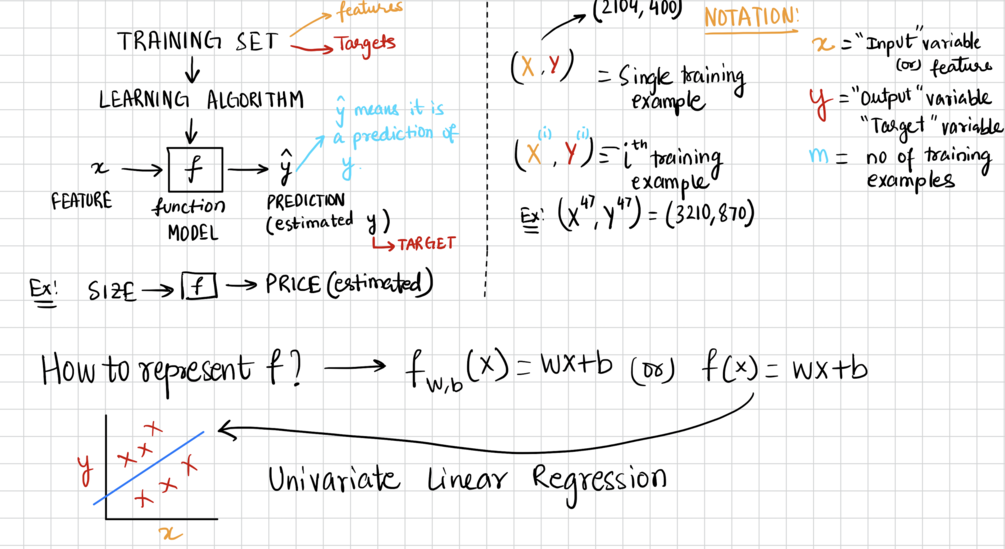 features
TRAINING SET
Targets
LEARNING ALGORITHM
ŷ means it is
a prediction of
y.
x
f
ŷ
FEATURE
function
MODEL
PREDICTION
(estimated y)
TARGET
Ex: SIZE → f → PRICE (estimated)
(2104, 400)
(X, Y) = Single training
example
(X⁽ⁱ⁾, Y⁽ⁱ⁾) = iᵗʰ training
example
Ex: (X⁴⁷, Y⁴⁷) = (3210, 870)
NOTATION:
x = "Input" variable
(or) feature
y = "Output" variable
"Target" variable
m = no of training
examples
How to represent f? → f_w,b (x) = wx+b (or) f(x) = wx+b
y
x
Univariate Linear Regression